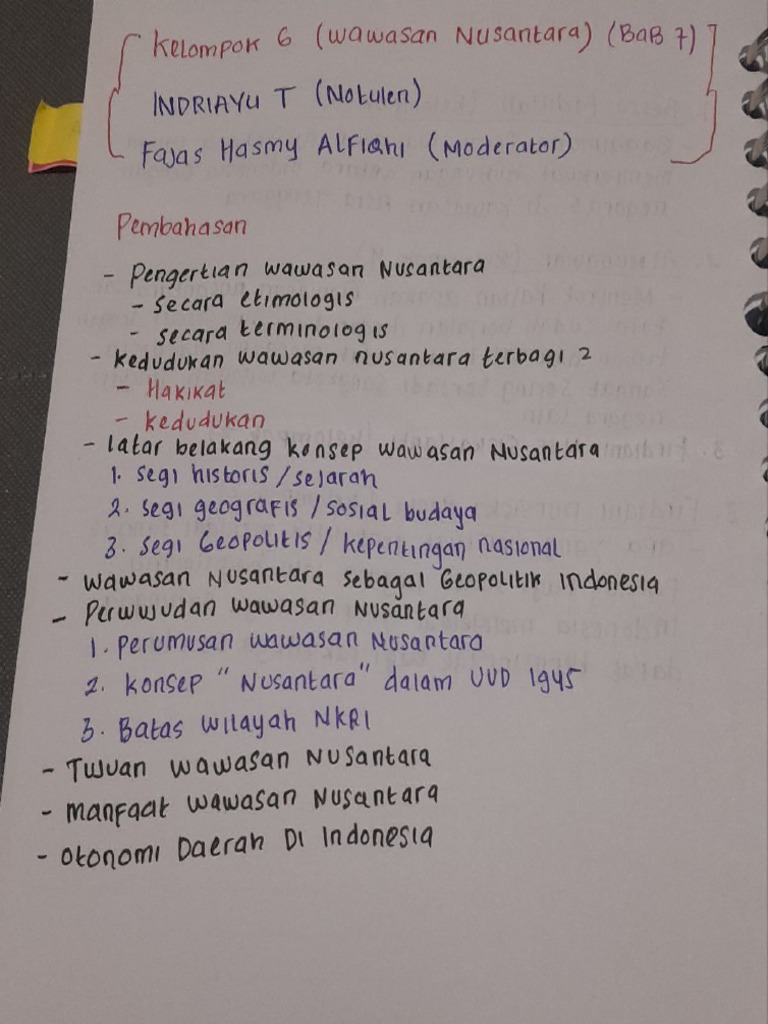 Kelompok 6 (Wawasan Nusantara) (BaB 7)
INDRIAYU T (Notulen)
Fajas Hasmy Alfiqhi (Moderator)
Pembahasan
- Pengertian wawasan Nusantara
- Secara etimologis
- secara terminologis
- kedudukan wawasan nusantara terbagi 2
- Hakikat
- kedudukan
- latar belakang konsep wawasan Nusantara
1. segi historis / sejarah
2. segi geografis / sosial budaya
3. segi Geopolitis / kepentingan nasional
- wawasan Nusantara sebagai Geopolitik Indonesia
- Perwujudan wawasan Nusantara
1. perumusan wawasan Nusantara
2. konsep "Nusantara" dalam UUD 1945
3. Batas wilayah NKRI
- Tujuan wawasan Nusantara
- manfaat wawasan Nusantara
- otonomi Daerah Di Indonesia